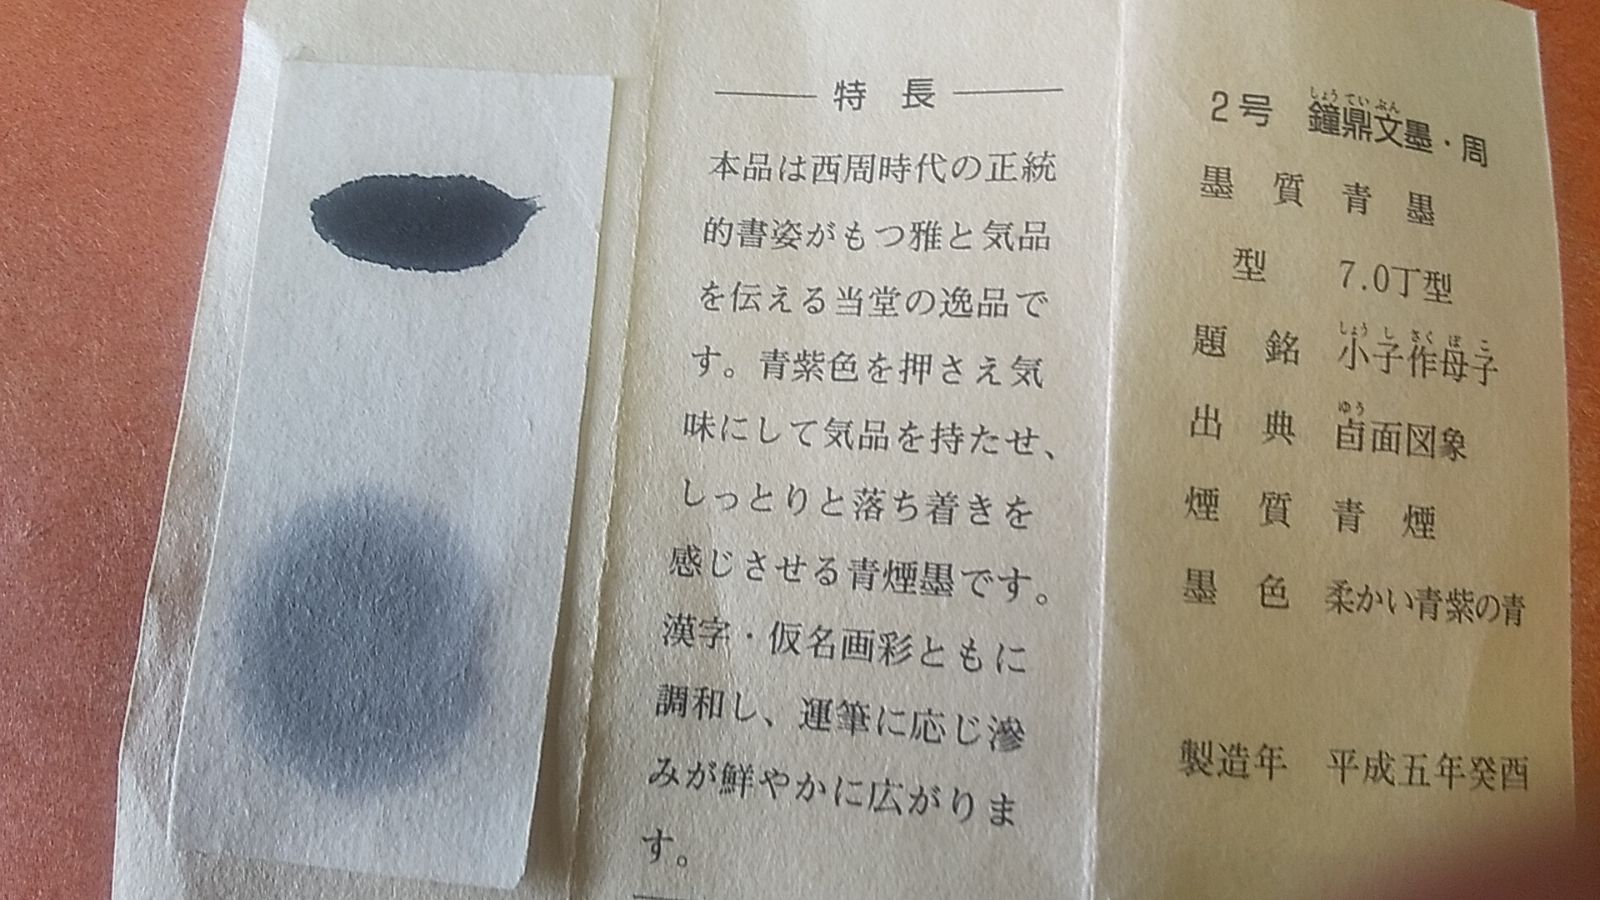 特長
本品は西周時代の正統
的書姿がもつ雅と気品
を伝える当堂の逸品で
す。青紫色を押さえ気
味にして気品を持たせ、
しっとりと落ち着きを
感じさせる青煙墨です。
漢字・仮名画彩ともに
調和し、運筆に応じ滲
みが鮮やかに広がりま
す。
しょうていぶん
2号 鐘鼎文墨・周
墨質 青墨
型 7.0丁型
しょうしさくぼこ
題銘 小子作母子
ゆう
出典 卣面図象
煙質 青煙
墨色 柔かい青紫の青
製造年 平成五年癸酉